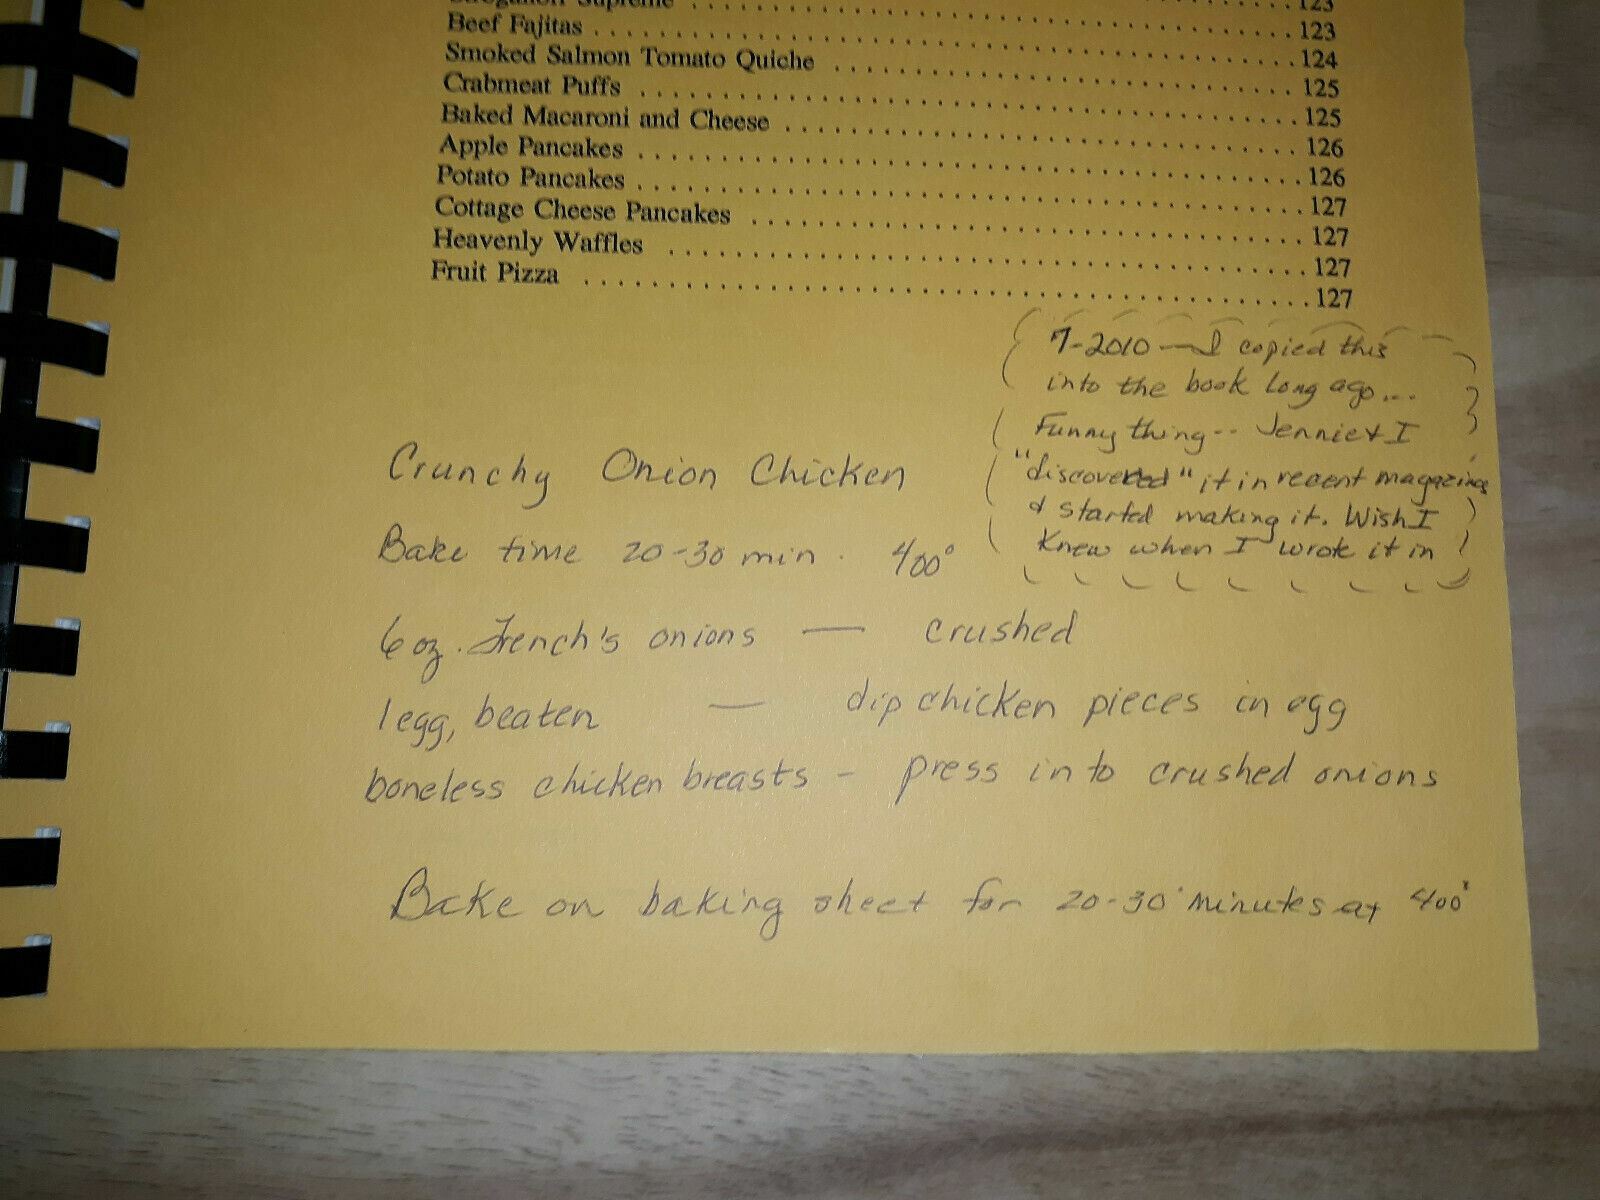 Supreme . . . . . . . . . . . . . . . . . . . . 123
Beef Fajitas . . . . . . . . . . . . . . . . . . . . 123
Smoked Salmon Tomato Quiche . . . . . . . . . . . . . . . . . . . . 124
Crabmeat Puffs . . . . . . . . . . . . . . . . . . . . 125
Baked Macaroni and Cheese . . . . . . . . . . . . . . . . . . . . 125
Apple Pancakes . . . . . . . . . . . . . . . . . . . . 126
Potato Pancakes . . . . . . . . . . . . . . . . . . . . 126
Cottage Cheese Pancakes . . . . . . . . . . . . . . . . . . . . 127
Heavenly Waffles . . . . . . . . . . . . . . . . . . . . 127
Fruit Pizza . . . . . . . . . . . . . . . . . . . . 127
127
7-2010 — I copied this
into the book long ago...
Funny thing -- Jennie & I
"discovered" it in recent magazines
& started making it. Wish I
Knew when I wrote it in
Crunchy Onion Chicken
Bake time 20-30 min. 400°
6 oz. French's onions — crushed
1 egg, beaten — dip chicken pieces in egg
boneless chicken breasts - press into crushed onions
Bake on baking sheet for 20-30 minutes at 400°